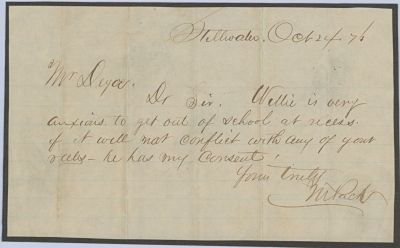 Stillwater, Oct 24 76
Mr Dyer.
Dr Sir. Willie is very
anxious to get out of school at recess.
if it will not conflict with any of your
rules - he has my Consent!
Yours truly